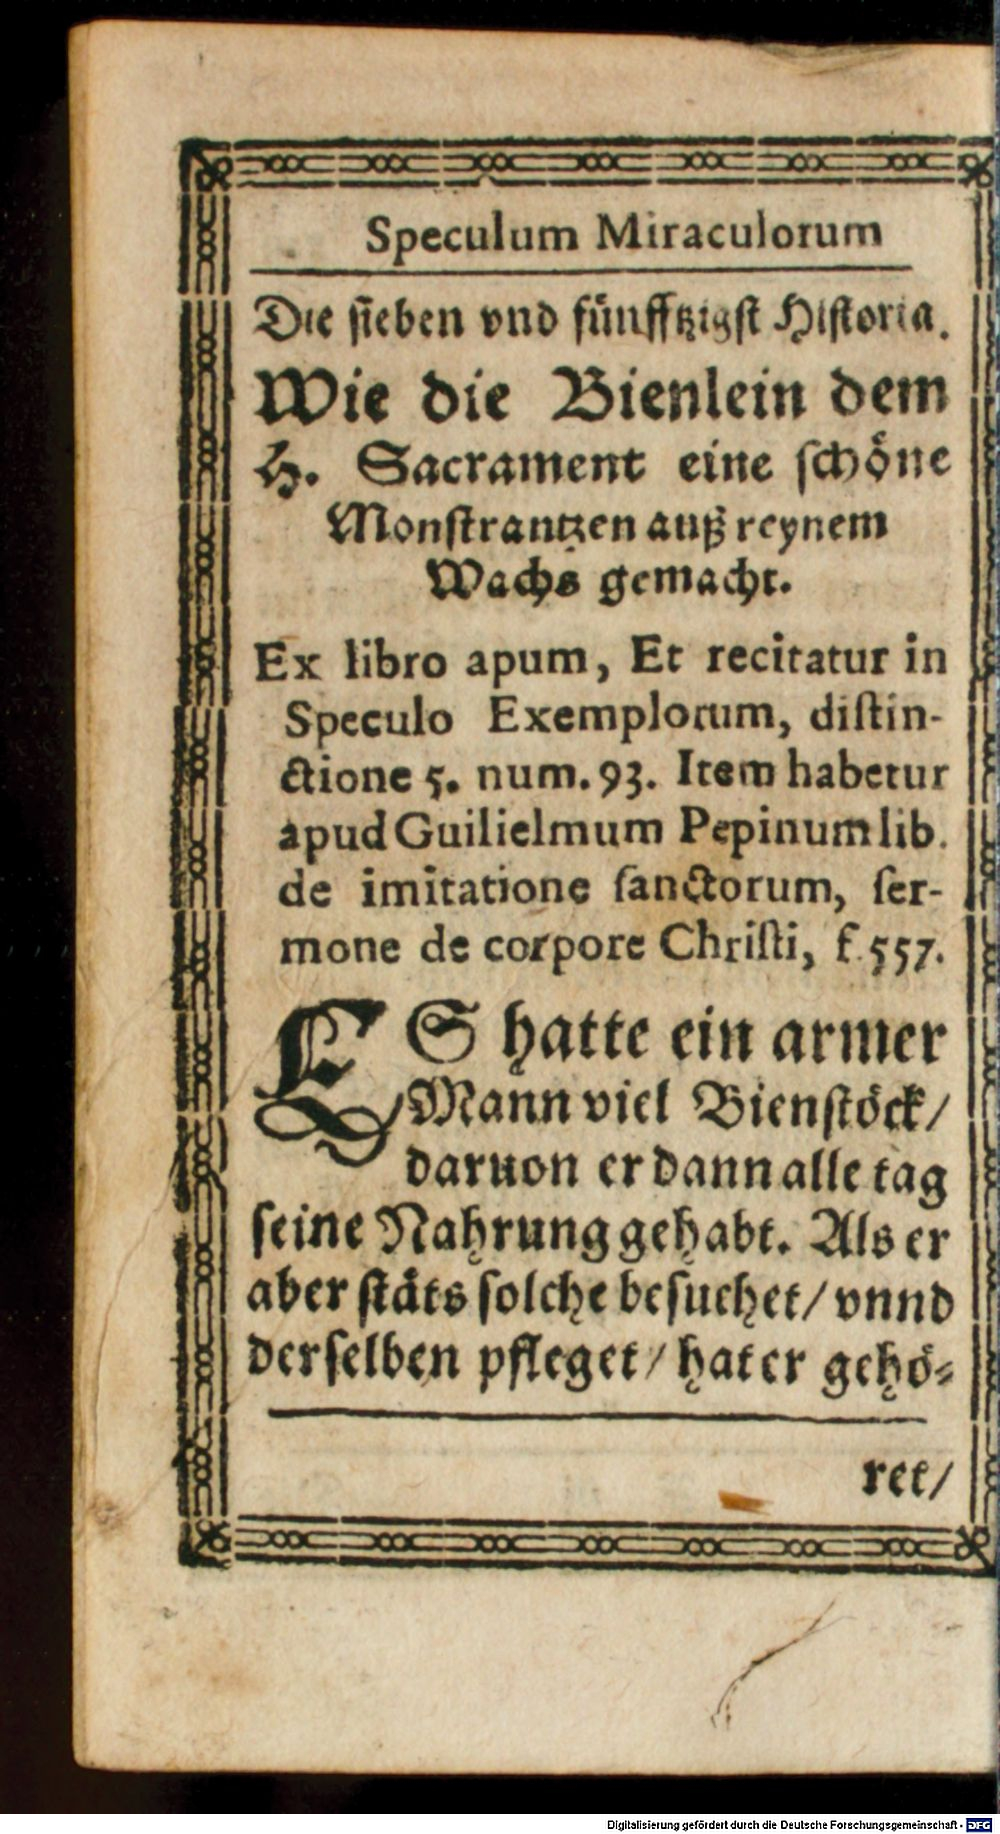 Speculum Miraculorum
Die sieben vnd fünfftzigst Historia.
Wie die Bienlein dem
H. Sacrament eine schöne
Monstrantzen auß reynem
Wachs gemacht.
Ex libro apum, Et recitatur in
Speculo Exemplorum, distin-
ctione 5. num. 93. Item habetur
apud Guilielmum Pepinum lib.
de imitatione sanctorum, ser-
mone de corpore Christi, f. 557.
ES hatte ein armer
Mann viel Bienstöck/
daruon er dann alle tag
seine Nahrung gehabt. Als er
aber stäts solche besuchet/ vnnd
derselben pfleget/ hat er gehö-
ret/
Digitalisierung gefördert durch die Deutsche Forschungsgemeinschaft - DFG